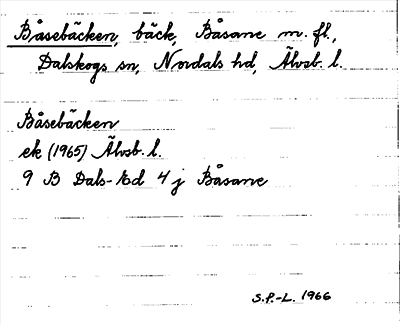 Båsebäcken, bäck, Båsane m. fl.,
Dalskogs sn, Nordals hd, Älvsb. l.
Båsebäcken
ek (1965) Älvsb. l.
9 B Dals-Ed 4 j Båsane
S.P.-L. 1966